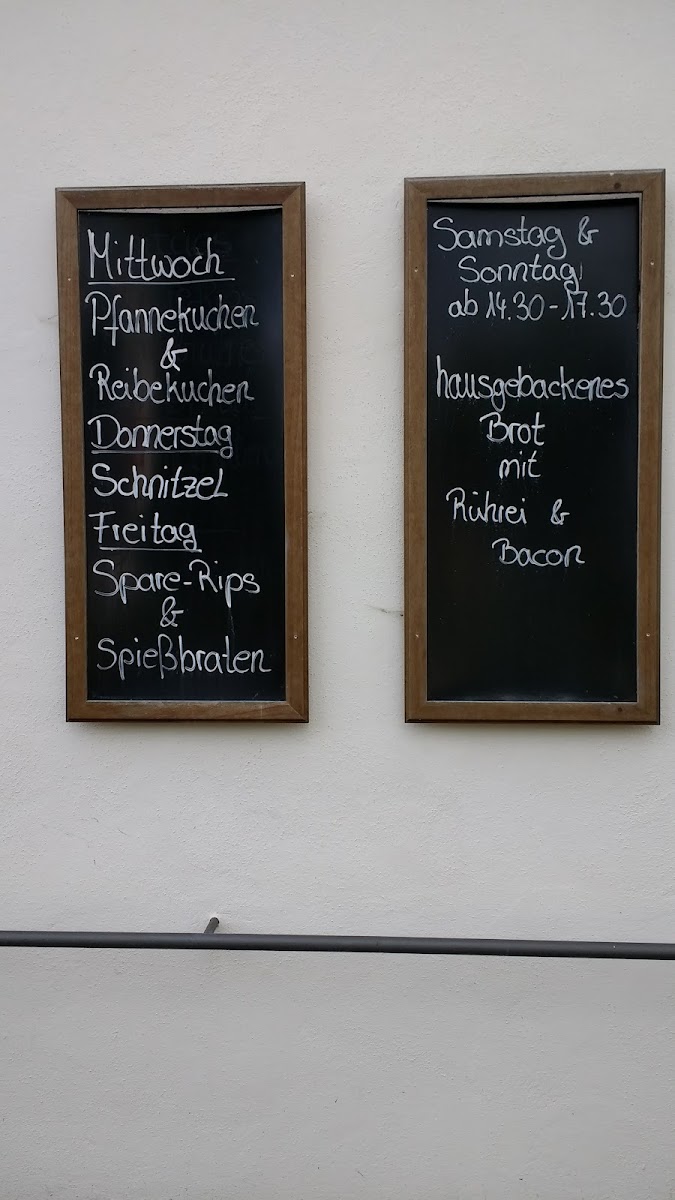 Mittwoch
Pfannekuchen
&
Reibekuchen
Donnerstag
Schnitzel
Freitag
Spare-Rips
&
Spießbraten
Samstag &
Sonntag
ab 14.30-17.30
hausgebackenes
Brot
mit
Rührei &
Bacon